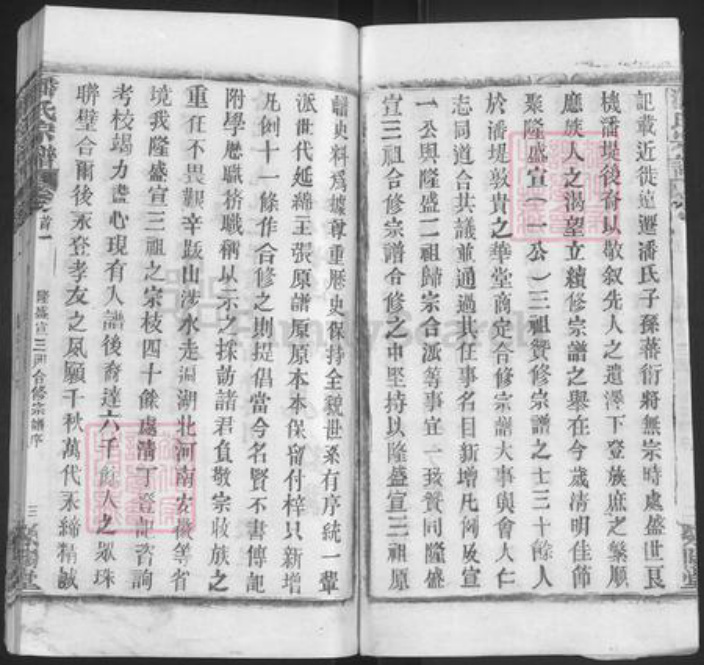 記載近徙遠遷潘氏子孫蕃衍將無宗時處盛世良
機潘堤後裔以敬叙先人之遺澤下登族庶之繁順
應族人之渴望立續修宗譜之舉在今歲清明佳節
聚隆盛宣（一公）三祖贊修宗譜之士三十餘人
於潘堤敦貴之華堂商定合修宗譜大事與會人仁
志同道合共議並通過其任事名目新增凡例及宣
一公與隆盛二祖歸宗合派等事宜一致贊同隆盛
宣三祖合修宗譜合修之中堅持以隆盛宣三祖原
譜史料爲據尊重歷史保持全貌世系有序統一輩
派世代延綿主張原譜原原本本保留付梓只新增
凡例十一條作合修之則提倡當今名賢不書傳記
附學歷職務職稱以示之採訪諸君負敬宗收族之
重任不畏艱辛跋山涉水走遍湖北河南安徽等省
境我隆盛宣三祖之宗枝四十餘處清丁登記咨詢
考校竭力盡心現有人譜後裔達六千餘人之眾珠
聯璧合爾後永登孝友之風願千秋萬代永締精誠
潘氏宗譜
卷之首一
隆盛宣三祖合修宗譜序
三
FamilySearch